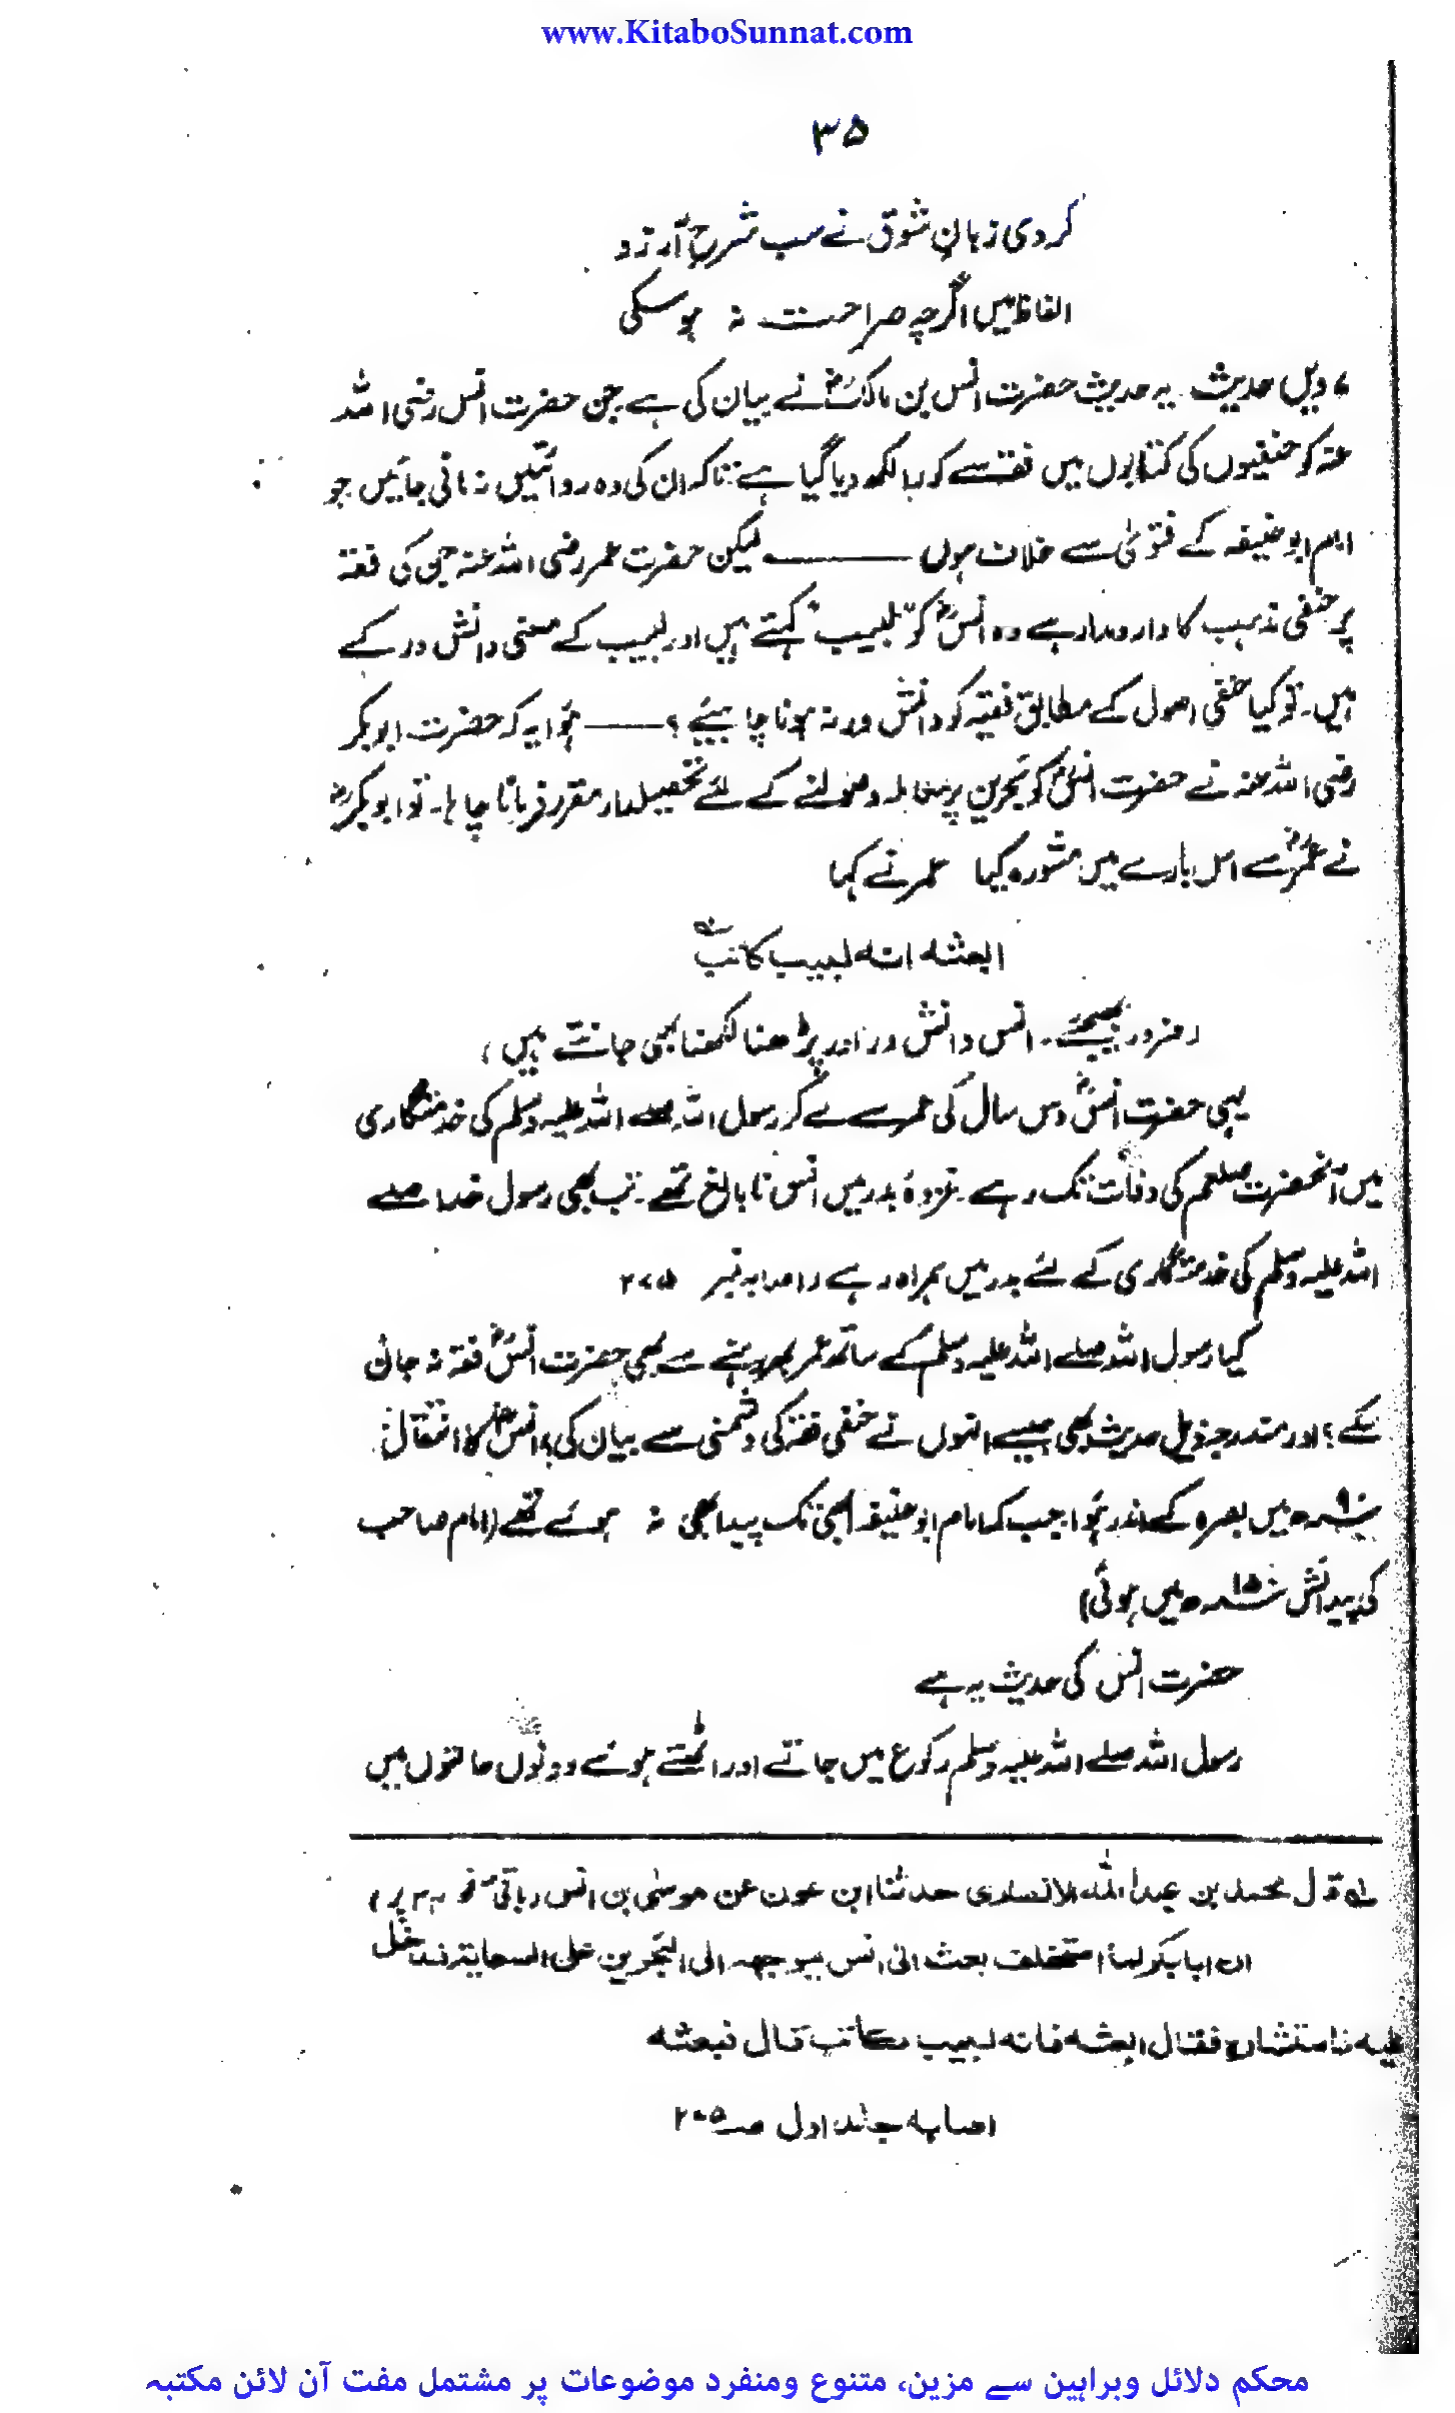 www.KitaboSunnat.com
۳۵
کر دی زبانِ شوق نے سب شرحِ آرزو
الفاظ میں اگرچہ صراحت نہ ہو سکی
۷ دیں حدیث یہ حدیث حضرت انس بن مالکؓ نے بیان کی ہے جن حضرت انس رضی اللہ
عنہ کو حنفیوں کی کتابوں میں فقہ سے کورا لکھ دیا گیا ہے تاکہ ان کی وہ روائتیں نہ مانی جائیں جو
امام ابو حنیفہ کے فتویٰ سے خلاف ہوں ——— لیکن حضرت عمر رضی اللہ عنہ جن کی فقہ
پر حنفی مذہب کا دارومدار ہے وہ انسؓ کو "لبیب" کہتے ہیں اور لبیب کے معنی دانش ور کے
ہیں۔ تو کیا حنفی اصول کے مطابق فقیہ کو دانش ور نہ ہونا چاہیئے ؟ —— ہُوا یہ کہ حضرت ابو بکر
رضی اللہ عنہ نے حضرت انسؓ کو بَحرین پر معاملہ وصولنے کے لئے تحصیلدار مقرر فرمانا چاہا۔ تو ابو بکرؓ
نے عمرؓ سے اس بارے میں مشورہ کیا عمر نے کہا
ابعثہ انہ لبیب کاتب لہ
(ضرور بھیجئے۔ انس دانش ور اور پڑھنا لکھنا بھی جانتے ہیں)
یہی حضرت انسؓ دس سال کی عمر سے لے کر رسول اللہ صلے اللہ علیہ وسلم کی خدمتگاری
میں آنحضرت صلعم کی وفات تک رہے۔ غزوۂ بدر میں انس نابالغ تھے۔ تب بھی رسول خدا صلے
اللہ علیہ وسلم کی خدمتگاری کے لئے بدر میں ہمراہ رہے (اصابہ نمبر ۲۷۵
کیا رسول اللہ صلے اللہ علیہ وسلم کے ساتھ عمر بھر رہنے سے بھی حضرت انسؓ فقہ نہ جان
سکے؟ اور مندرجہ ذیل حدیث بھی جیسے انہوں نے حنفی فقہ کی دشمنی سے بیان کی؟ انسؓ کا انتقال
۹۰ھ میں بصرہ کے اندر ہُوا جب کہ امام ابو حنیفہ ابھی تک پیدا بھی نہ ہوئے تھے (امام صاحب
کی پیدائش ۱۵۰ھ میں ہوئی)
حضرت انس کی حدیث یہ ہے
رسول اللہ صلے اللہ علیہ وسلم رکوع میں جاتے اور اٹھتے ہوئے دونوں حالتوں میں
لہ قال محمد بن عبد اللہ الانصاری حدثنا ابن عون عن موسیٰ بن انس (باقی صفحہ ۳۴ پر)
ان ابا بکر لما استخلف بعث الی انس لیوجہہ الی البحرین علی السعایۃ فدخل
علیہ فاستشارہ فقال ابعثہ فانہ لبیب کاتب قال فبعثہ
اصابہ جلد اول صـ ۲۰۵
محکم دلائل وبراہین سے مزین، متنوع ومنفرد موضوعات پر مشتمل مفت آن لائن مکتبہ